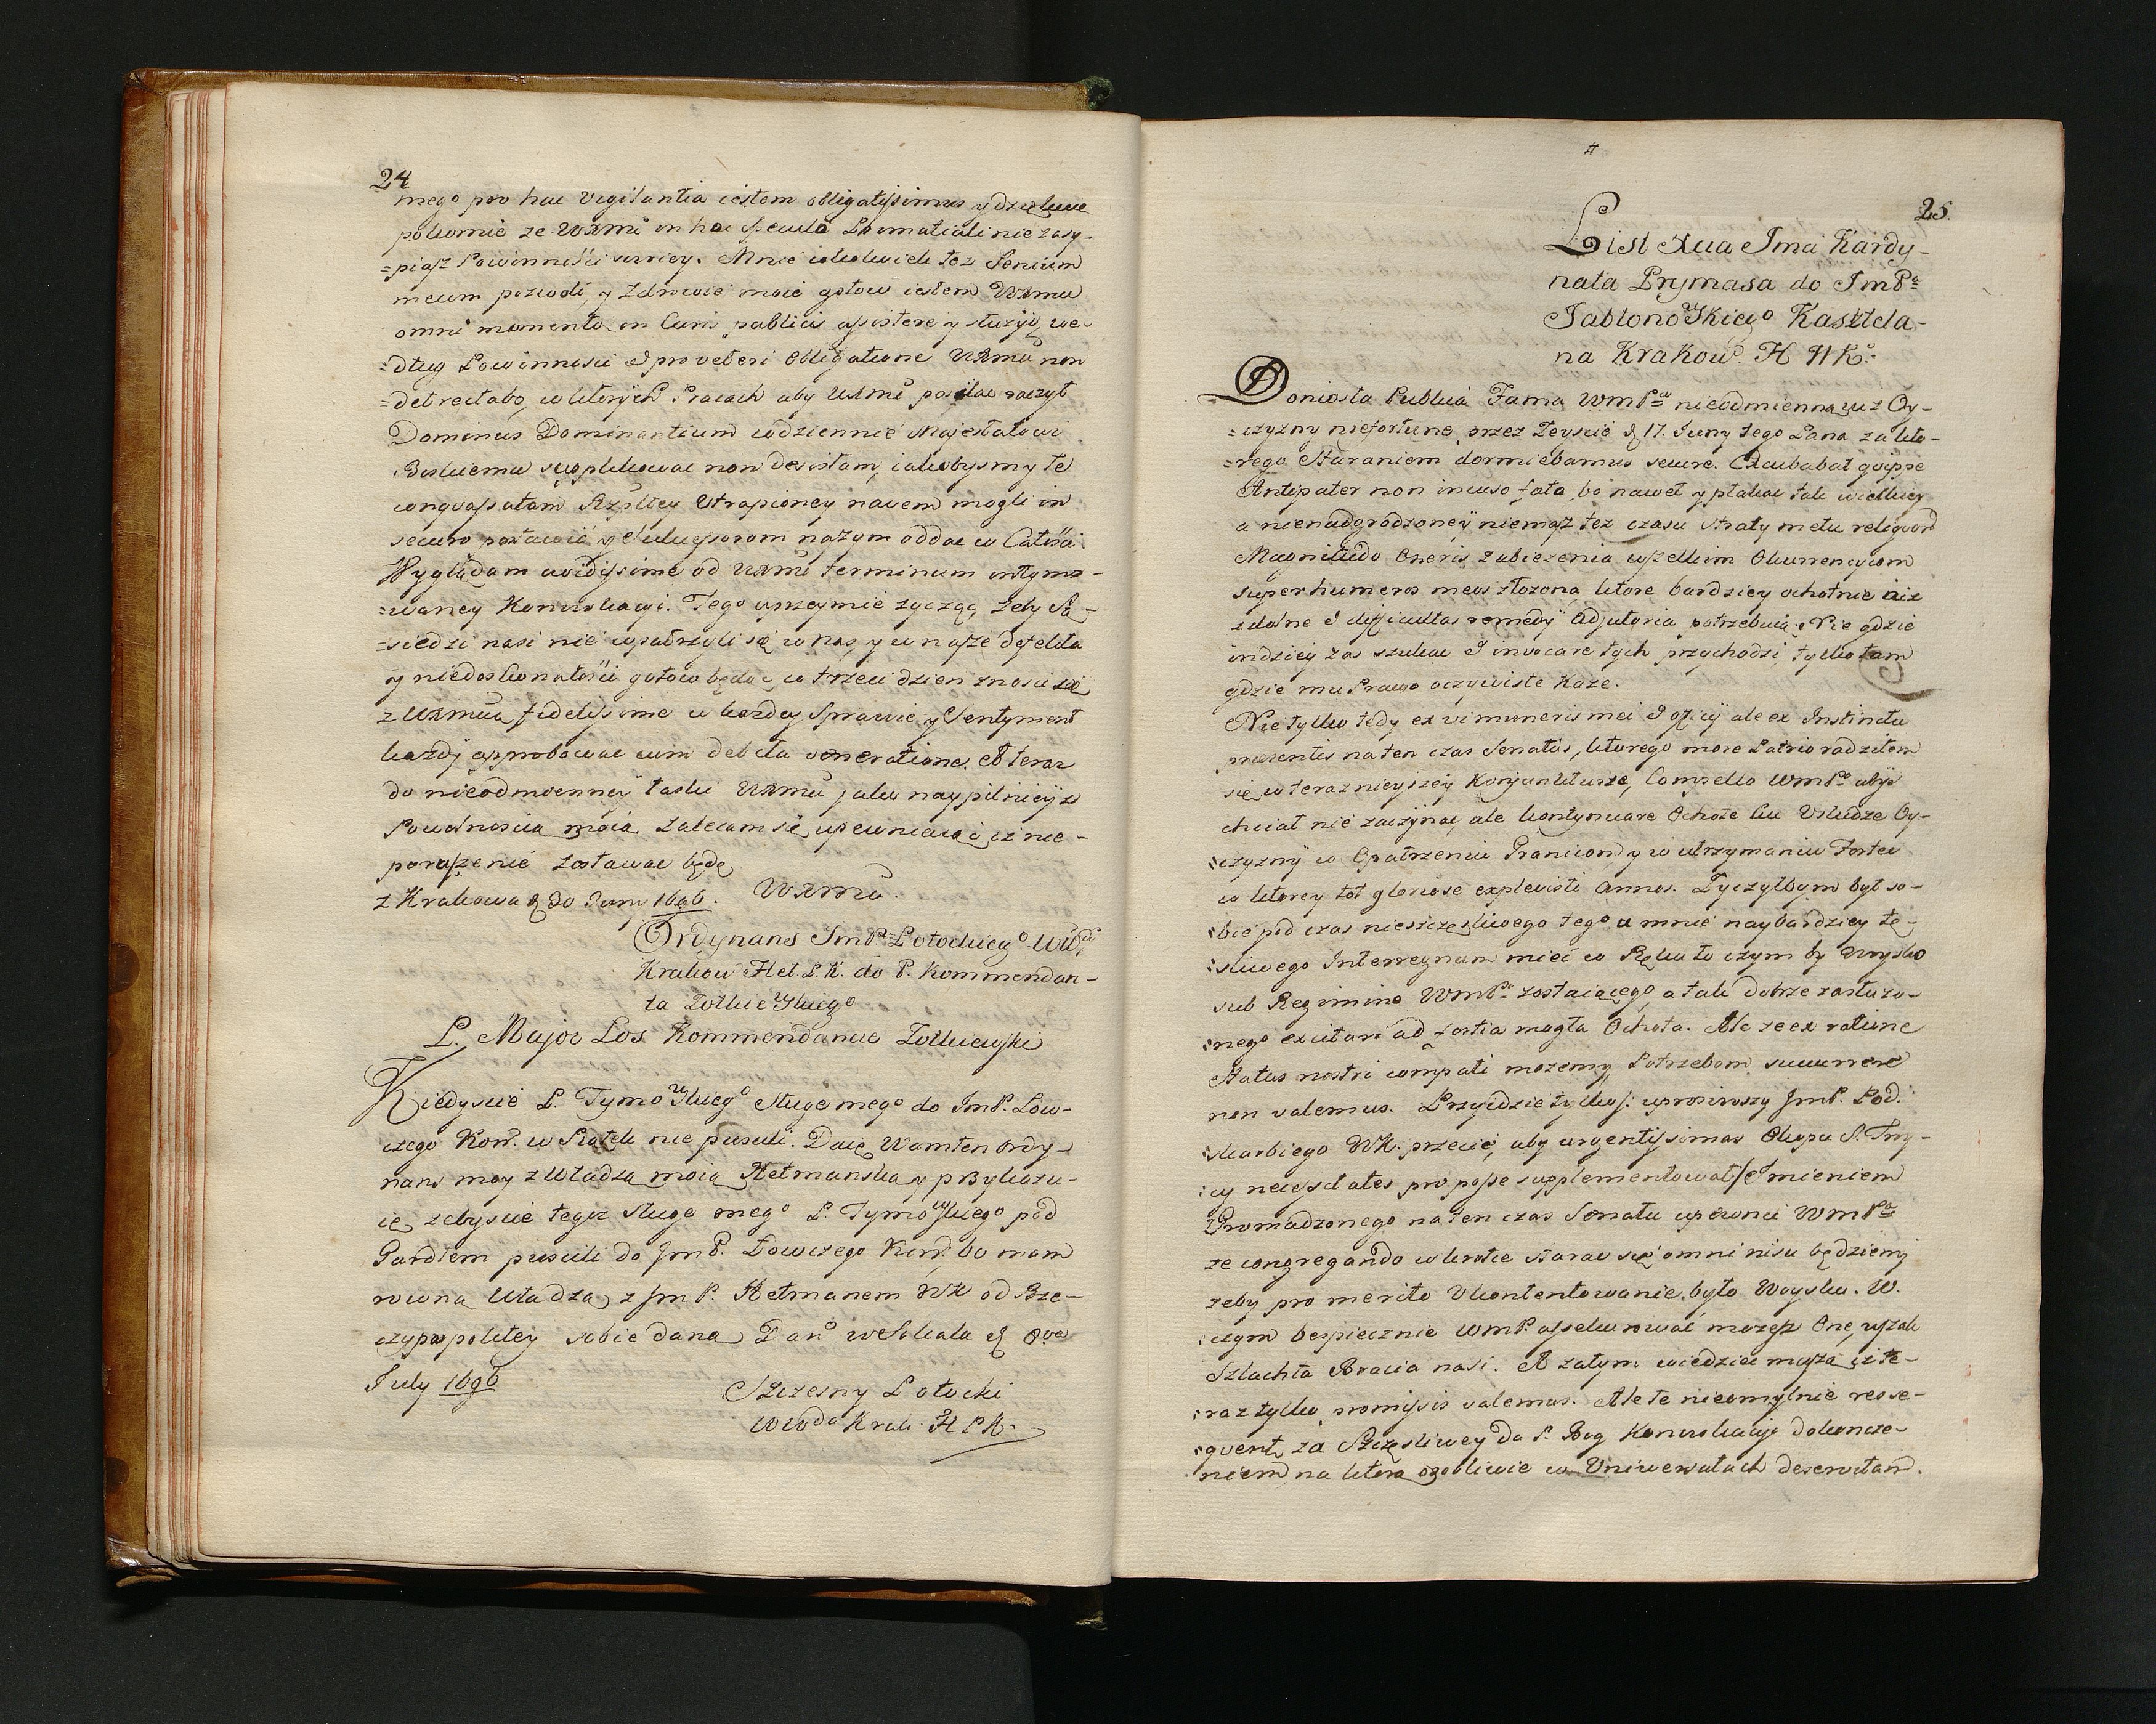 24
mego pro hac Vigilantia iestem obligatissimus y dziękuie
pokornie ze WXMć in hac specula Primatiali nie zasy-
=piasz Powinnośći swoiey. Mnie iakokolwiek tez Senium
meum pozwoli, y Zdrowie moie gotow iestem WXMći
omni momento in Curis publicis assistere y służyć, we-
=dług Powinnosci I pro veteri Obligatione WXMći non
=detrectabo, w ktorych Pracach aby WXMći posilac raczył
Dominus Dominantium codziennie Majestatowi
Boskiemu supplikowac non desistam, iakobysmy te
conquassatam Rzpltey Utrapioney navem mogli in
securo postawić y Sukcessorom naszym oddac w Całośći
Wyglądam avidissime od WXMći terminum intymo-
=waney Konwokacyi. Tego uprzeymie zycząc, żeby Są-
=siedzi nasi nie wpatrzyli się w nas, y w nasze defekta
y niedoskonałośći gotow będąc w trzeci dzien znosic się
z WXMcią fidelissime w kazdey Sprawie, y Sentyment
kazdy approbowac cum debita veneratione. A teraz
do nieodmienney łaski WXMći jako naypilniey z
Powolnoscią moią zalecam się upewniaiąc iz nie-
poruszenie zostawac będę
z Krakowa d 30 Juny 1696. WXMći.
Ordynans JmP. Potockieg° Wdy
Krakow Het. P. K. do P. Kommendan-
ta Zołkiewskiego
P. Major Pos Kommendancie Zołkiewski
Kiedyscie P. Tymowskieg° sługe meg° do JmP. Łow-
czego Kor. w Piątek nie puscili. Daię Wam ten Ordy-
nans moy z Władzą moią Hetmanską y przykazu-
ię zebyscie tegoz sługe meg° P. Tymowskiego pod
Gardłem puscili do JmP. Łowczego Kor. bo mam
rowną Władzą z JmP. Hetmanem WK od Rze-
czypospolitey sobie daną Dan w Sokalu d 8va
July 1696
Szczesny Potocki
Wwoda Krak. H P K.
#
25.
List Xcia Jmci Kardy-
nała Prymasa do JmPa
Jabłonowskiego Kasztela-
na Krakow. H WK.
Doniosła Publica Fama WmPu nieodmienną iuz Oy-
=czyzny niefortune przez Zeyscie d 17. Juny tego Pana za kto-
=rego Staraniem dormiebamus secure. Excubabat quippe
Antipater non incuso fata, bo nawet y płakac tak wielkiey
a nienadgrodzoney niemasz tez czasu straty metu reliquorum
Magnitudo Oneris zabiezenia wszelkim Okurrencyom
super humeros meos złozona, ktore bardziey ochotnie niz
zdolne I difficultas remedy Adjutoria potrzebuią. Nie gdzie
indziey zas szukac I invocare tych przychodzi tylko tam
gdzie mu Prawo oczywiste Kaze.
Nie tylko tedy ex vi muneris mei I officij ale ex Instinctu
præsentis na ten czas Senatus, ktorego more Patrio radziłem
się w teraznieyszey Konjunkturze, Compello WmPa abys
chciał nie zaczynac, ale kontynuare Ochote ku Usłudze Oy-
:czyzny w Opatrzeniu Granicom, y w utrzymaniu Fortec
w ktorey tot gloriose explevisti Annos. Zyczyłbym był so-
:bie pod czas nieszczesliwego tego a mnie naybardziey te-
:skliwego Interregnum miec w Ręku to czym by Woysko
sub Regimine WmPa zostaiącego, a tak dobrze zasłuzo-
:nego excitari ad fortia mogła Ochota. Ale ze ex ratione
Status nostri compati mozemy, Potrzebom succurrere
non valemus. Przyidzie tylko /: uprosiwszy JmP. Pod-
:skarbiego WK. przecie, aby urgentissimas Okopu S. Tróy-
:cy necessitates pro posse supplementował / Imieniem
Zgromadzonego na ten czas Senatu upewnic WmPa
ze congregando w krotce starac się omni nisu będziemy
zeby pro merito Ukontentowanie było Woysku. W.
:czym bespiecznie WmP. assekurować mozesz Onę, wszak
Szlachta Bracia nasi. A zatym wiedziec muszą iz te-
:raz tylko promissis valemus. Ale te nieomylnie res se-
:quent, za Szczęsliwey da P. Bog Konwokacyi dokoncze-
niem, na ktorą osobliwie w Uniwersałach deservitam.